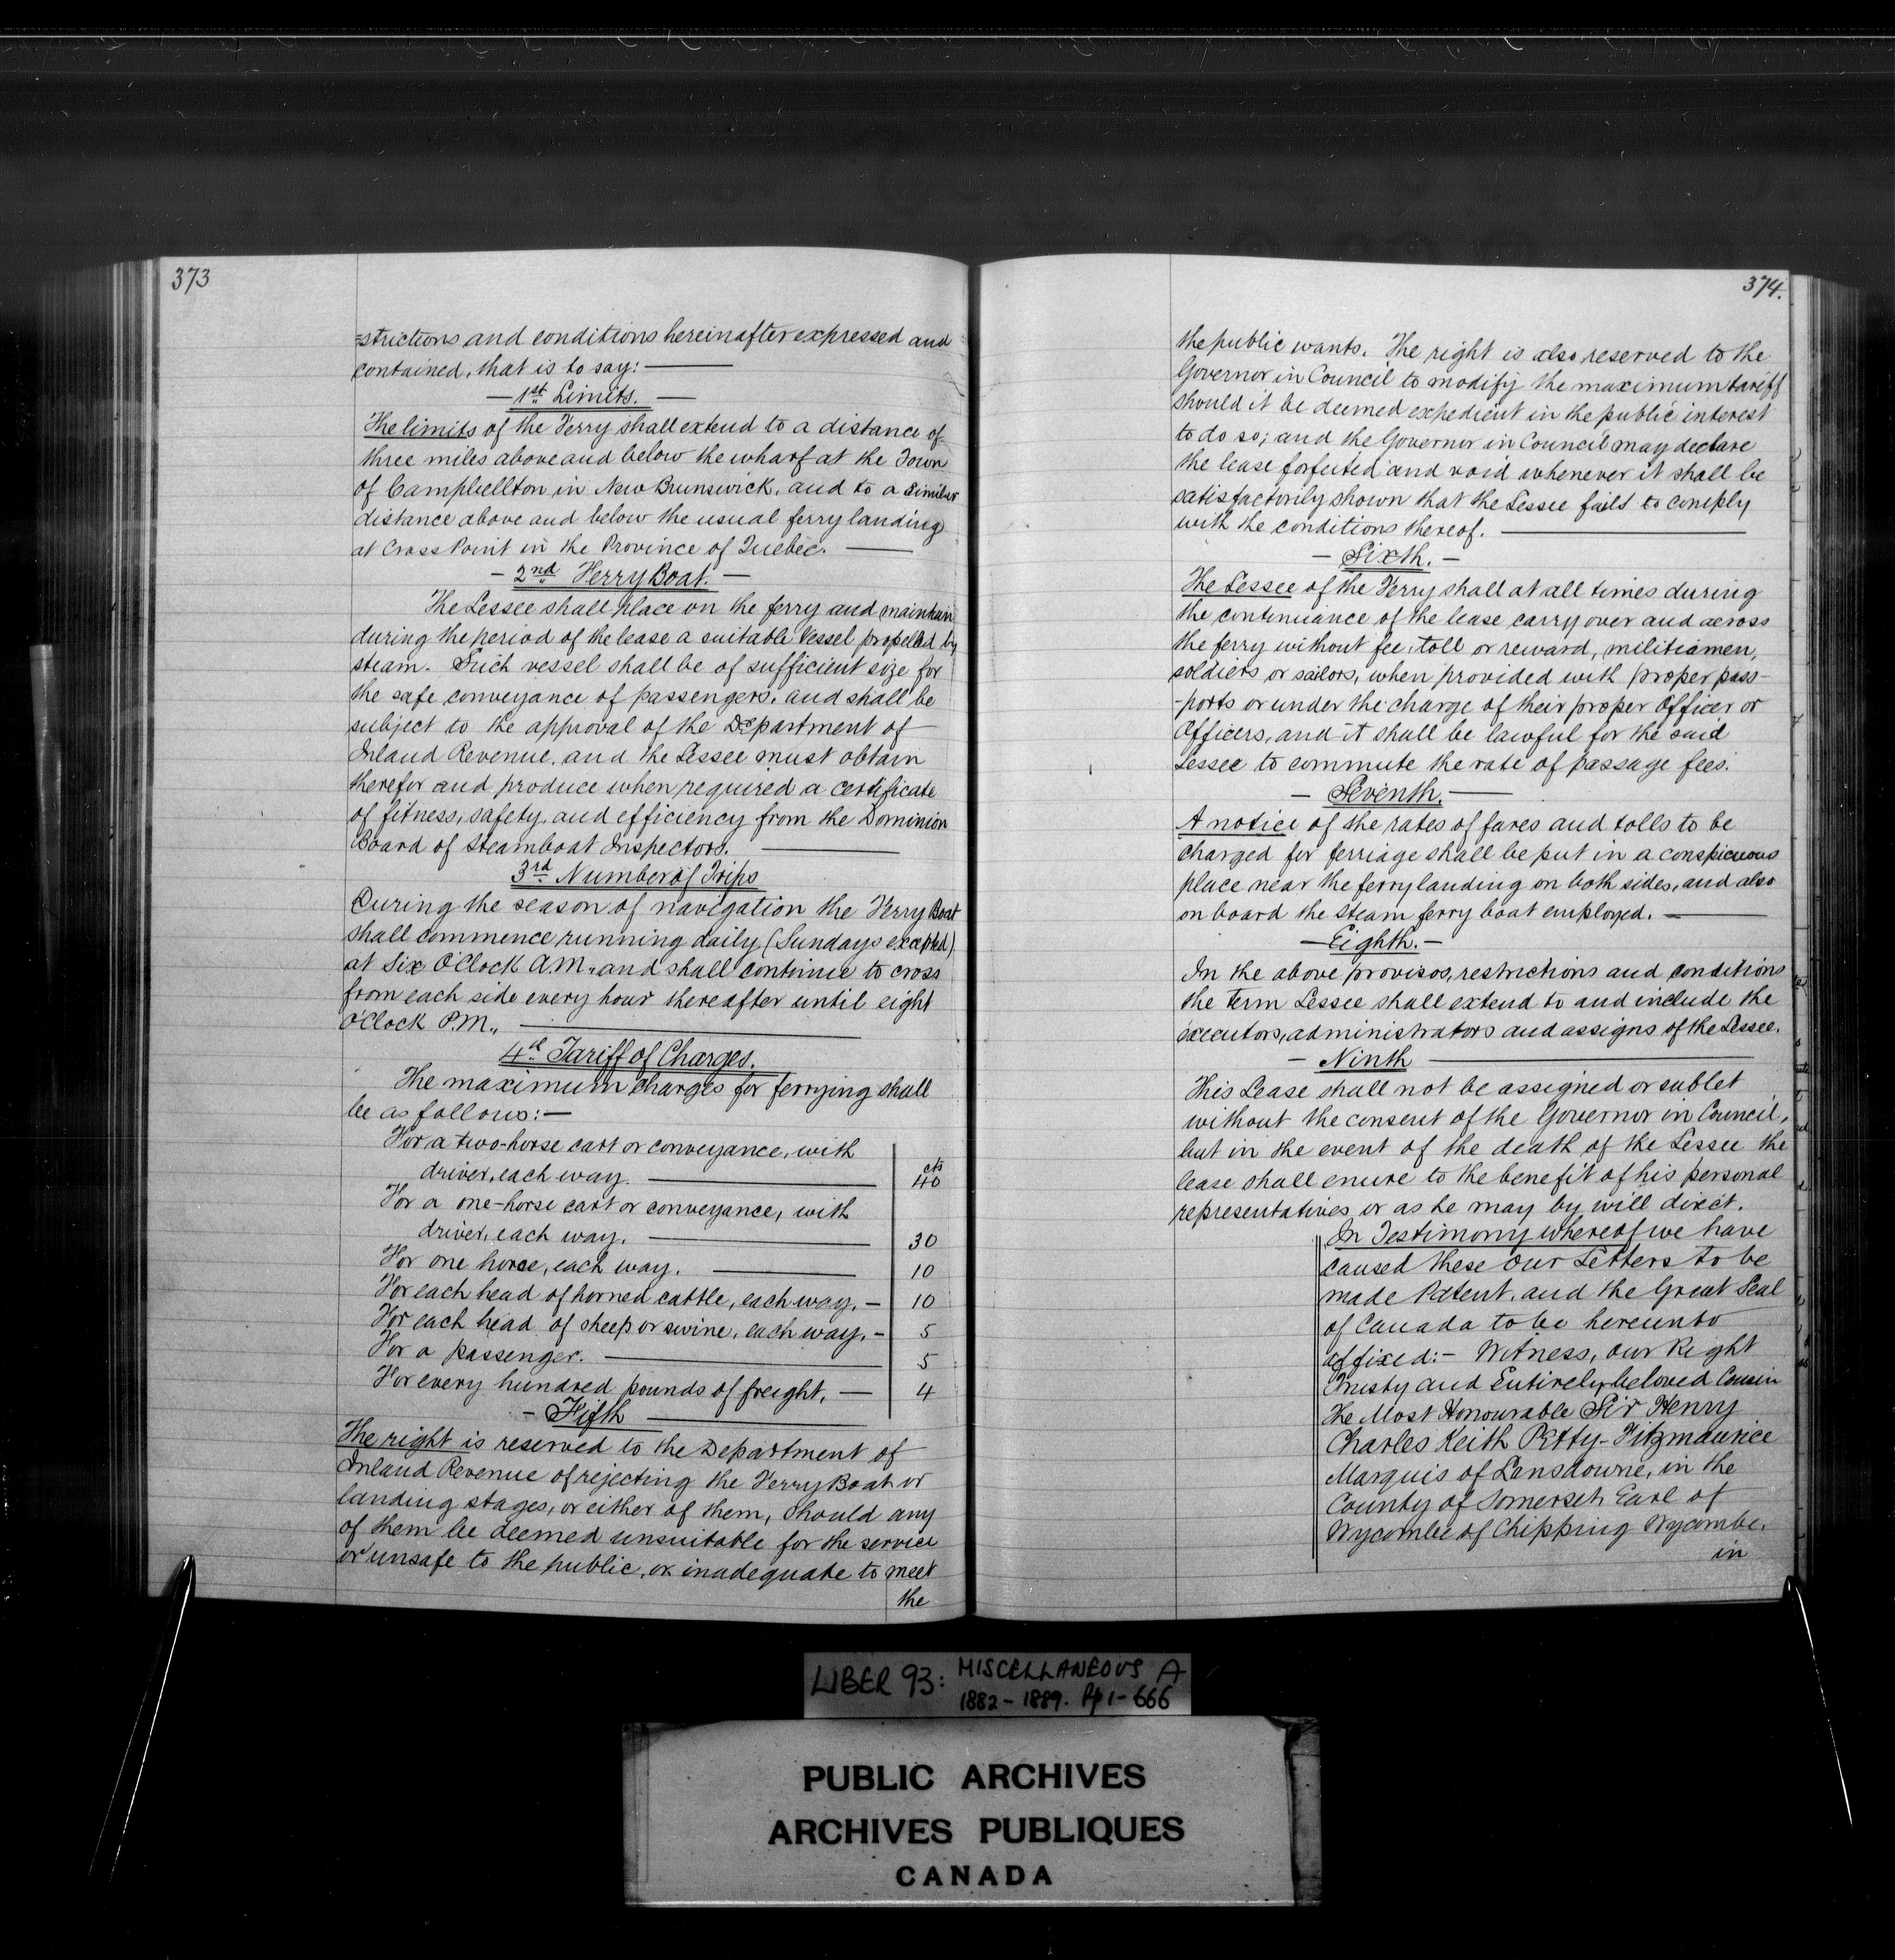 373
=strictions and conditions hereinafter expressed and
contained, that is to say:—
— 1st Limits. —
The limits of the Ferry shall extend to a distance of
three miles above and below the wharf at the Town
of Campbellton in New Brunswick, and to a similar
distance above and below the usual ferry landing
at Cross Point in the Province of Quebec. —
— 2nd Ferry Boat. —
The Lessee shall place on the ferry and maintain
during the period of the lease a suitable Vessel propelled by
steam. Such vessel shall be of sufficient size for
the safe conveyance of passengers, and shall be
subject to the approval of the Department of
Inland Revenue, and the Lessee must obtain
therefor and produce when required a certificate
of fitness, safety, and efficiency from the Dominion
Board of Steamboat Inspectors. —
3rd Number of Trips
During the season of navigation the Ferry Boat
shall commence running daily (Sundays excepted)
at Six O'Clock A.M., and shall continue to cross
from each side every hour thereafter until eight
O'Clock P.M., —
4th Tariff of Charges.
The maximum charges for ferrying shall
be as follows:—
For a two-horse cart or conveyance, with
driver, each way. — cts 40
For a one-horse cart or conveyance, with
driver, each way. — 30
For one horse, each way. — 10
For each head of horned cattle, each way. — 10
For each head of sheep or swine, each way. — 5
For a passenger. — 5
For every hundred pounds of freight, — 4
— Fifth —
The right is reserved to the Department of
Inland Revenue of rejecting the Ferry Boat or
landing stages, or either of them, should any
of them be deemed unsuitable for the service
or unsafe to the public, or inadequate to meet
the
374.
the public wants. The right is also reserved to the
Governor in Council to modify the maximum tariff
should it be deemed expedient in the public interest
to do so; and the Governor in Council may declare
the lease forfeited and void whenever it shall be
satisfactorily shown that the Lessee fails to comply
with the conditions thereof. —
— Sixth. —
The Lessee of the Ferry shall at all times during
the continuance of the lease carry over and across
the ferry without fee, toll or reward, militiamen,
soldiers or sailors, when provided with proper pass-
-ports or under the charge of their proper Officer or
Officers, and it shall be lawful for the said
Lessee to commute the rate of passage fees.
— Seventh. —
A notice of the rates of fares and tolls to be
charged for ferriage shall be put in a conspicuous
place near the ferry landing on both sides, and also
on board the steam ferry boat employed. —
— Eighth. —
In the above provisos, restrictions and conditions
the term Lessee shall extend to and include the
executors, administrators and assigns of the Lessee.
— Ninth —
This Lease shall not be assigned or sublet
without the consent of the Governor in Council,
but in the event of the death of the Lessee the
lease shall enure to the benefit of his personal
representatives or as he may by will direct.
In Testimony whereof we have
caused these our Letters to be
made Patent, and the Great Seal
of Canada to be hereunto
affixed:— Witness, our Right
Trusty and Entirely beloved Cousin
the Most Honourable Sir Henry
Charles Keith Petty-Fitzmaurice
Marquis of Lansdowne, in the
County of Somerset, Earl of
Wycombe of Chipping Wycombe,
in
LIBER 93: MISCELLANEOUS A
1882-1889. Pp 1-666
PUBLIC ARCHIVES
ARCHIVES PUBLIQUES
CANADA